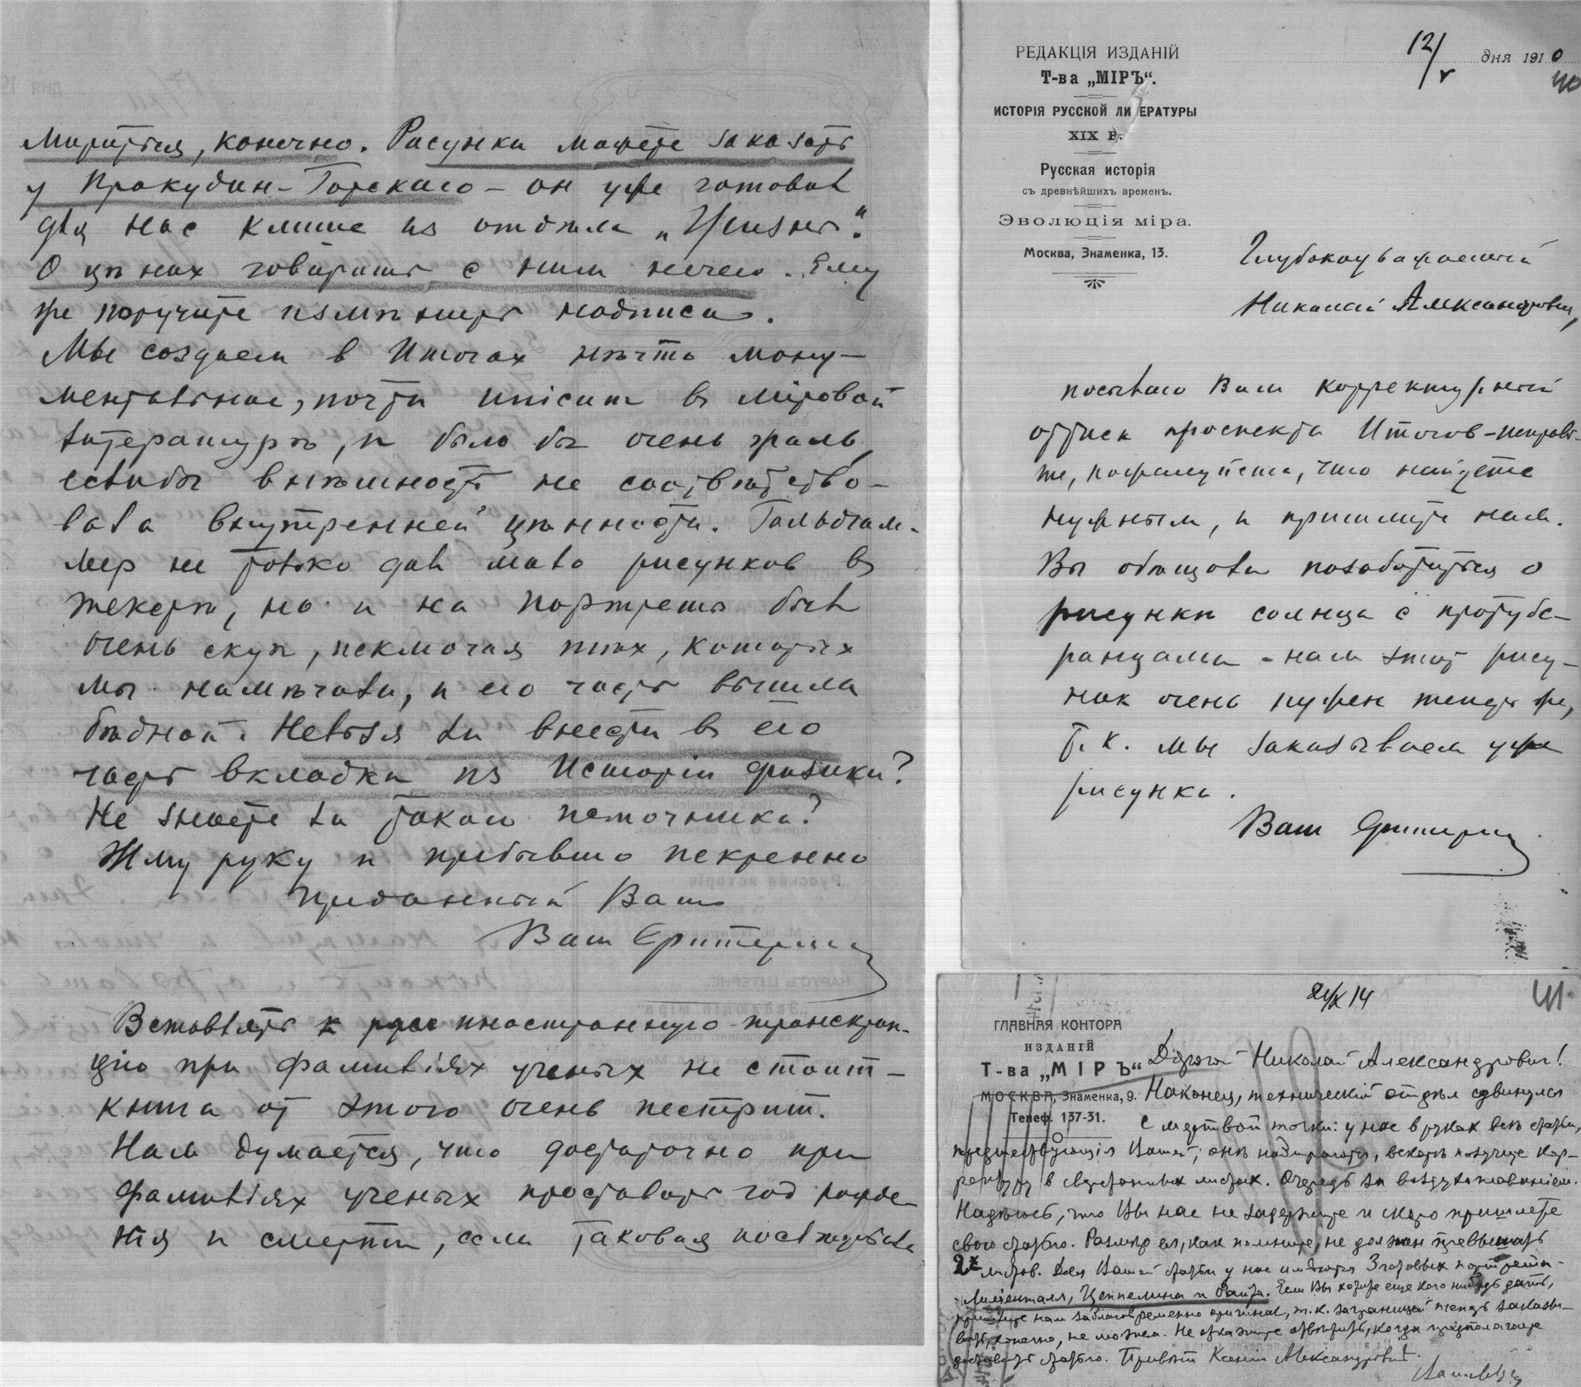 мириться, конечно. Рисунки можете заказать
у Прокудин-Горскаго – он уже готовит
для нас клише из отдела „Жизнь".
О ценах говорить с ним нечего. Ему
же поручите изменить надписи.
Мы создаем в Итогах нечто мону-
ментальное, почти unicum в міровой
литературе, и было бы очень жаль,
если бы внешность не соответство-
вала внутренней ценности. Гольдгам-
мер не только дал мало рисунков в
тексте, но и на портреты был
очень скуп, исключая тех, которых
мы намечали, и его часть вышла
бедной. Нельзя ли внести в его
часть вкладки из Исторіи физики?
Не знаете ли такого источника?
Жму руку и пребываю искренно
преданный Вам
Ваш
Вставлять к иностранную транскрип-
цію при фамиліях ученых не стоит –
книга от этого очень пестрит.
Нам думается, что достаточно при
фамиліях ученых проставить год рожде-
нія и смерти, если таковая последовала
РЕДАКЦІЯ ИЗДАНІЙ
Т-ва „МІРЪ".
ИСТОРІЯ РУССКОЙ ЛИ ЕРАТУРЫ
XIX В.
Русская исторія
съ древнѣйшихъ временъ.
Эволюція міра.
Москва, Знаменка, 13.
12/V дня 1910
40
Глубокоуважаемый
Николай Александрович,
посылаю Вам корректурный
оттиск проспекта Итогов – исправь-
те, пожалуйста, что найдете
нужным, и пришлите нам.
Вы обещали позаботиться о
рисунке солнца с протубе-
ранцами – нам этот рису-
нок очень нужен теперь же,
т. к. мы заказываем уже
рисунки.
Ваш
21/X 14
41
ГЛАВНАЯ КОНТОРА
ИЗДАНІЙ
Т-ва „МІРЪ"
МОСКВА, Знаменка, 9.
Телеф. 137-31.
Дорогой Николай Александрович!
Наконец, техническій отдел сдвинулся
с мертвой точки: у нас в руках все статьи,
предшествующія Вашей; оне набираются, вскоре получите кор-
ректуру в сверстанных листах. Очередь за воздухоплаваніем.
Надеюсь, что Вы нас не задержите и скоро пришлете
свою статью. Размер ея, как помните, не должен превышать
2х листов. Для Вашей статьи у нас имеются 3 готовых портрета –
Лиліенталя, Цеппелина и Райта. Если Вы хотите еще кого нибудь дать,
пришлите нам заблаговременно оригинал, т. к. заграницей теперь заказы-
вать, конечно, не можем. Не откажите ответить, когда предполагаете
доставить статью. Привет Ксеніи Александровне.